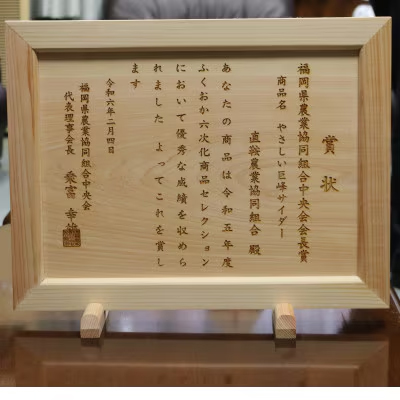 賞状
福岡県農業協同組合中央会会長賞
商品名 やさしい巨峰サイダー
直鞍農業協同組合 殿
あなたの商品は令和五年度
ふくおか六次化商品セレクション
において優秀な成績を収めら
れました よってこれを賞し
ます
令和六年二月四日
福岡県農業協同組合中央会
代表理事会長 乗富 幸雄